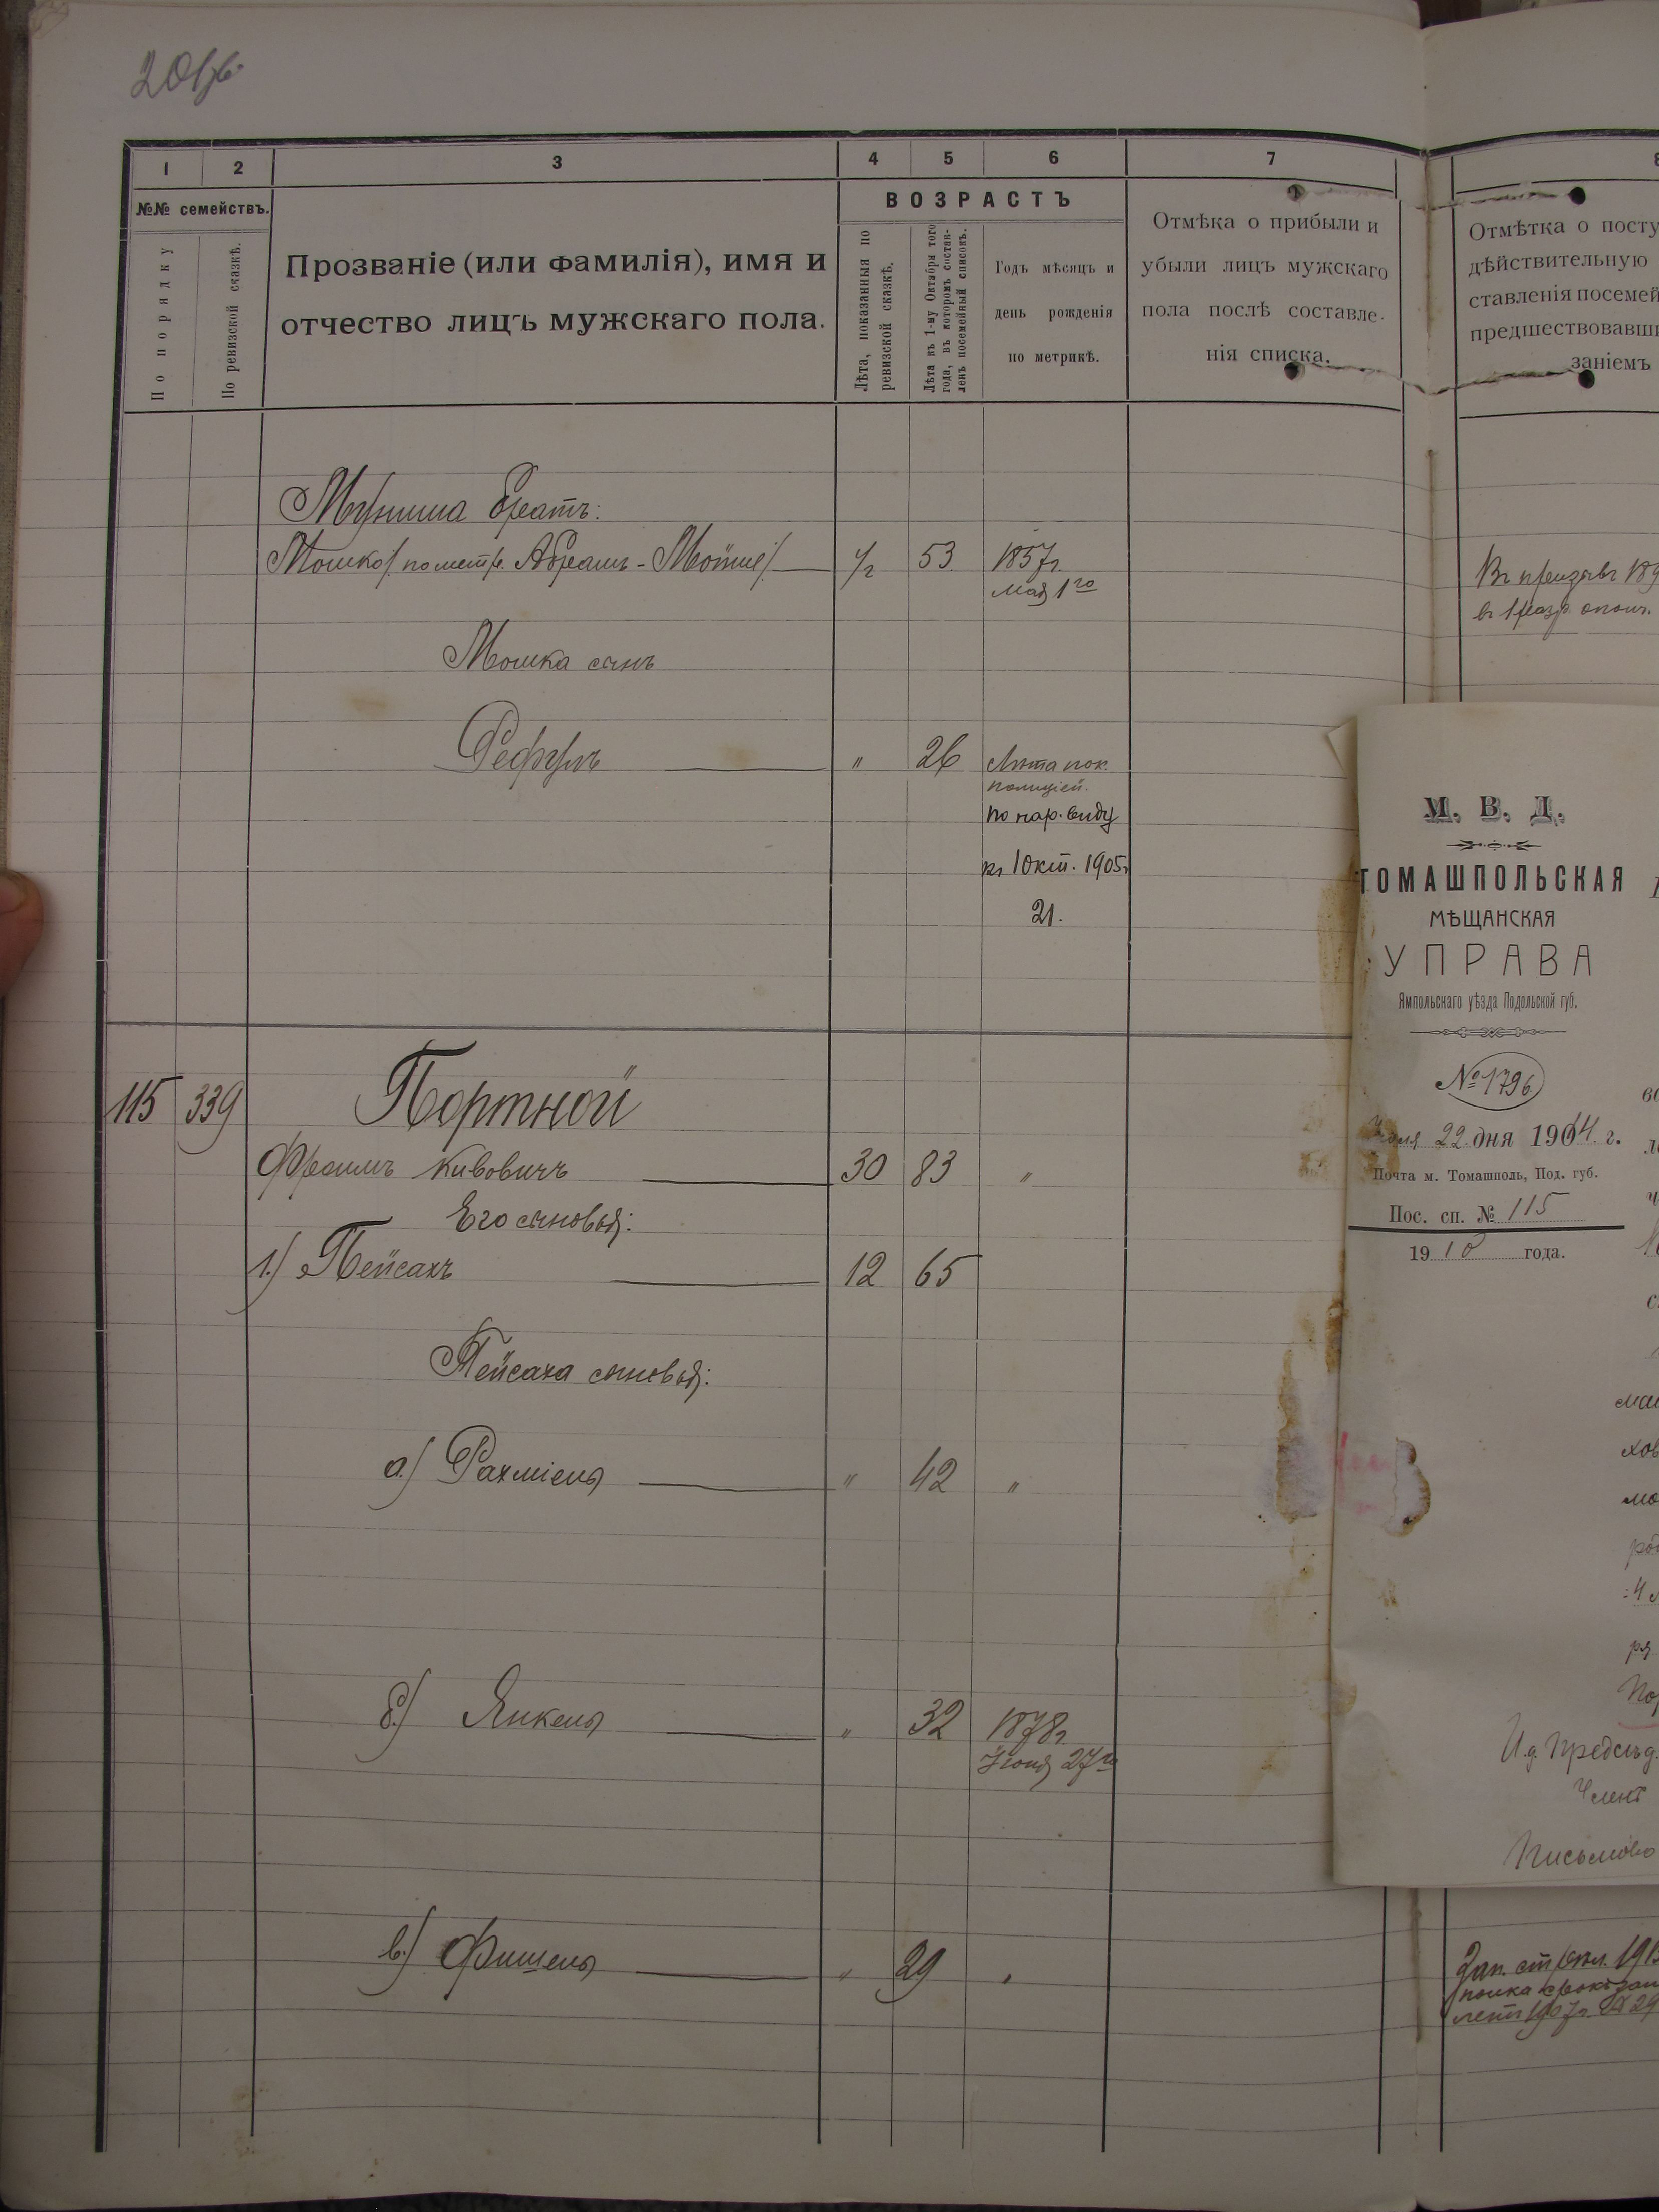 1 2 3 4 5 6 7
№№ семействъ.
По порядку
По ревизской сказкѣ.
Прозваніе (или фамилія), имя и
отчество лицъ мужскаго пола.
ВОЗРАСТЪ
Лѣта, показанныя по
ревизской сказкѣ.
Лѣта къ 1-му Октября того
года, въ которомъ состав-
ленъ посемейный списокъ.
Годъ мѣсяцъ и
день рожденія
по метрикѣ.
Отмѣка о прибыли и
убыли лицъ мужскаго
пола послѣ составле-
нія списка.
Отмѣтка о посту
дѣйствительную
ставленія посемей
предшествовавши
заніемъ
братъ:
Мошко/по метр. Абрамъ-Мойше/ 1/2 53 1857г.
мая 1го
Мошка сынъ
Рефулъ " 26 Лѣта пок.
полиціей.
по нар. виду
къ 1 Окт. 1905г
21.
115 339 Портной
Фроимъ Кивовичъ 30 83 "
Его сыновья:
1.) Пейсахъ 12 65
Пейсаха сыновья:
а.) Рахміель " 42 "
б.) Янкель " 32 1878г.
Іюня 27го
в.) Фишель " 29 "
М. В. Д.
ТОМАШПОЛЬСКАЯ
МѢЩАНСКАЯ
УПРАВА
Ямпольскаго уѣзда Подольской губ.
№ 1796
22 дня 1914 г.
Почта м. Томашполь, Под. губ.
Пос. сп. № 115
1910 года.
И.д. Предсѣд.
Членъ
Письмово